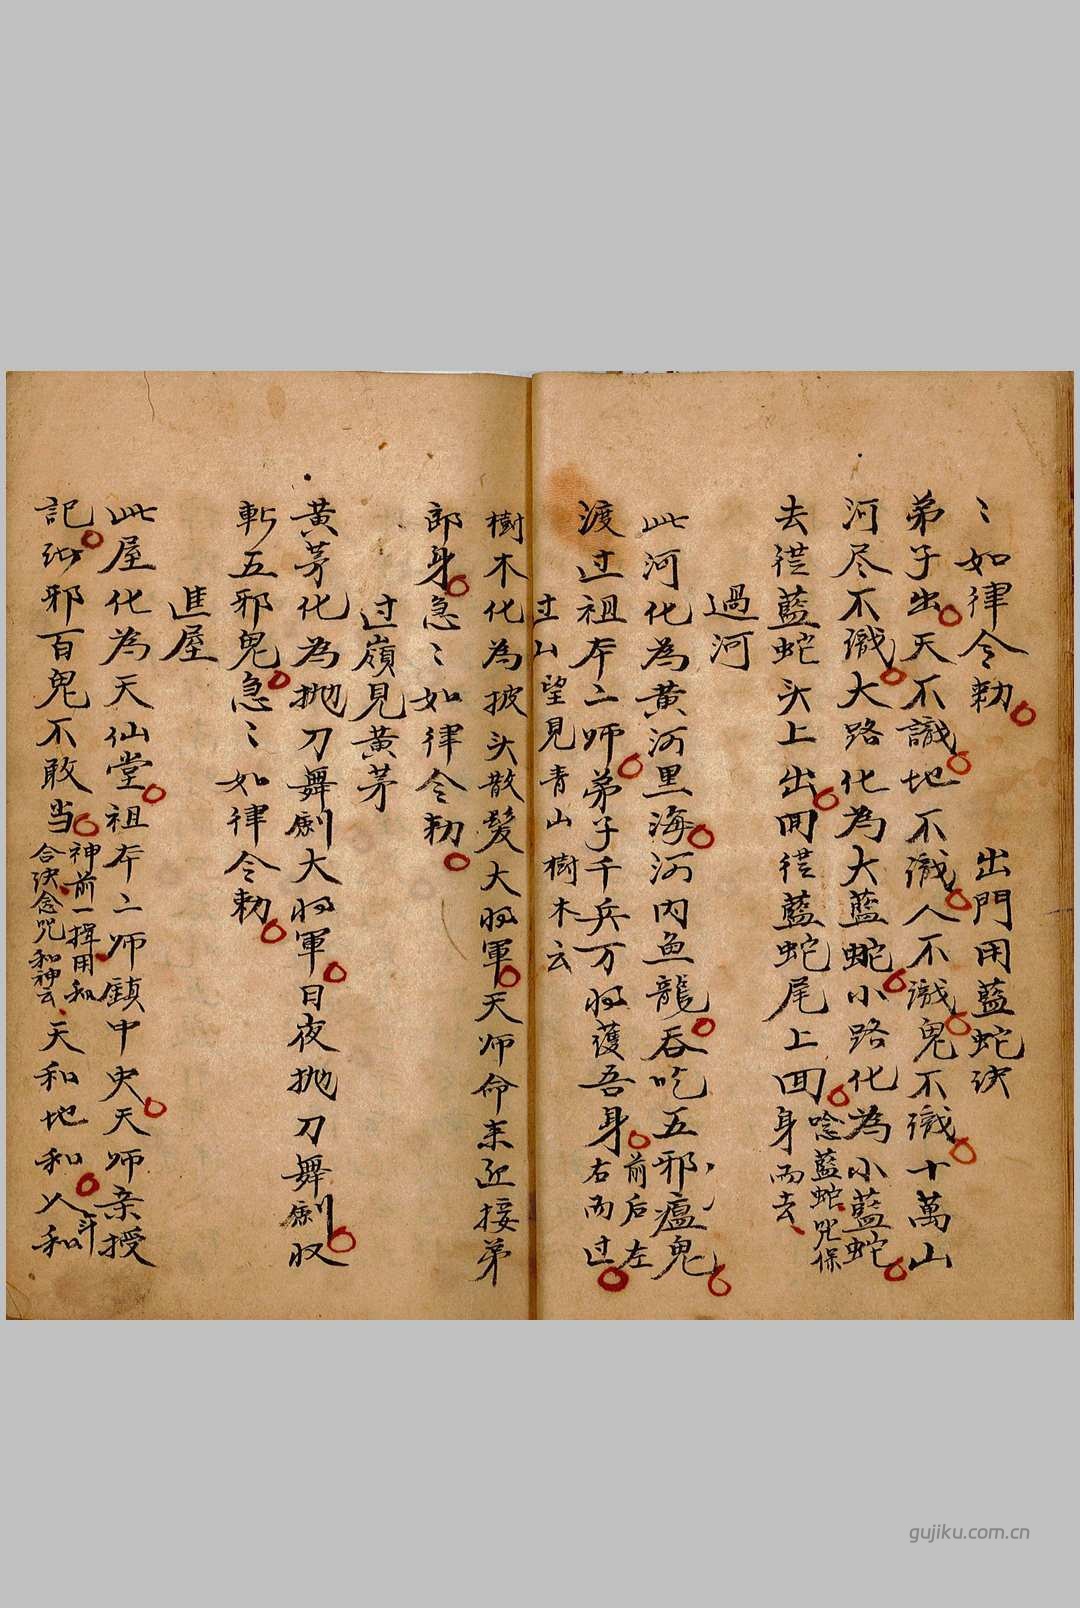 〻如律令勅　出門用藍蛇決
弟子出天不識地不識人不識鬼不識十萬山
河尽不識大路化為大藍蛇小路化為小藍蛇
去從藍蛇头上出囬從藍蛇尾上囬唸藍蛇咒保身而去
過河
此河化為黄河里海河内鱼龍吞吃五邪瘟鬼
渡过祖本二师弟子千兵万将護吾身前后左右而过
过山望見青山樹木云
樹木化為披头散髮大将軍天师命来近接弟
郎身急〻如律令勅
过嶺見黄茅
黄茅化為抛刀舞劍大将軍日夜抛刀舞劍収
斬五邪鬼急〻如律令勅
進屋
此屋化為天仙堂祖本二师鎮中央天师亲授
記邪百鬼不敢当神前一揖用和合決念咒和神云天和地和人和年
gujiku.com.cn